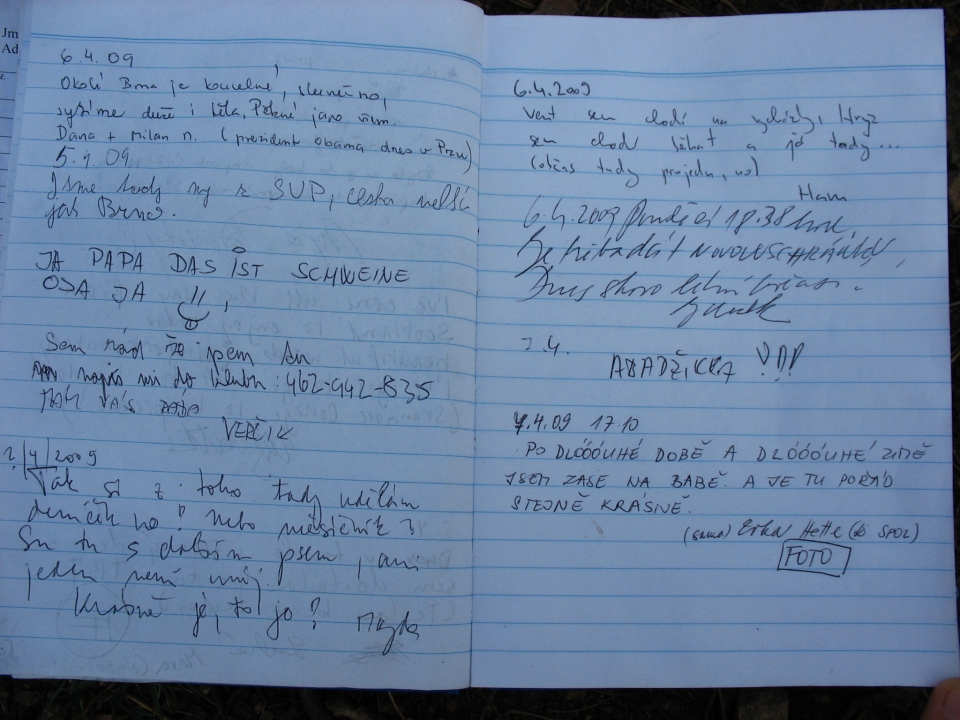 Jm
Ad
6.4.09
Okolí Brna je kouzelné, slunečno,
sytíme duši i těla. Pěkné jaro všem.
Dana + Milan n. (prezident Obama dnes v Praze)
5.4.09
Jsme tady my z SVP, cesta nelší
jak Brno.
JA PAPA DAS IST SCHWEINE
OJA JA
Sem rád že jsem tu
napiš mi do klubu: 462-942-835
MÁM VÁS RÁDA
VERČIK
7/4/2009
Tak si z toho tady udělám
deníček no? nebo měsíčník?
Su tu s dalším psem, ani
jeden není můj.
Krásně je, to jo? Magda
6.4.2009
Vent sem chodí na vycházky, Hryz
sem chodí běhat a já tady...
(občas tudy projedu, no)
Ham
6.4.2009 Pondělí 18.38 hod.
Dnes skoro letní počasí.
7.4.
ABADŽIEVA !!!
7.4.09 17.10
PO DLÓÓÓUHÉ DOBĚ A DLÓÓÓUHÉ ZIMĚ
JSEM ZASE NA BABĚ. A JE TU POŘÁD
STEJNĚ KRÁSNĚ.
(sama) Erka Hette (& SPOL)
FOTO